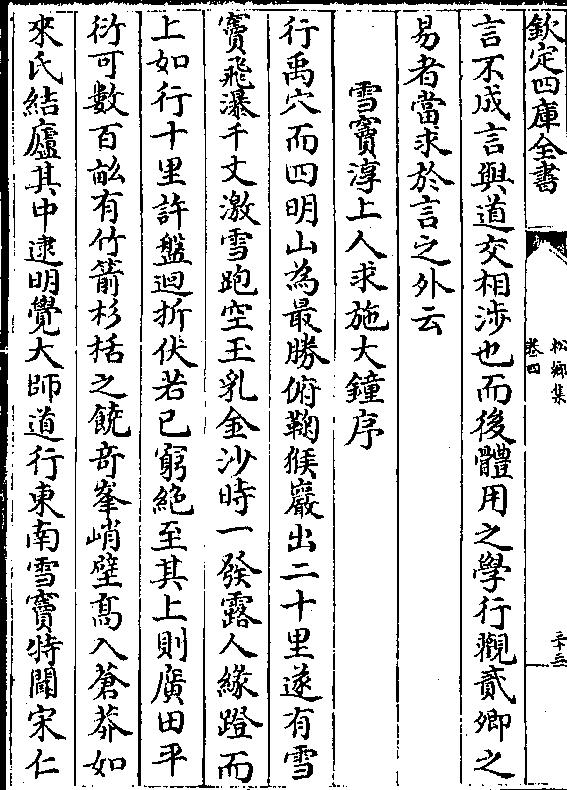 欽定四庫全書
松鄉集
卷四
三十三
言不成言與道交相涉也而後體用之學行觀貳卿之
易者當求於言之外云
雪竇淳上人求施大鐘序
行禹穴而四明山為最勝俯鞠猴巖出二十里遂有雪
竇飛瀑千丈激雪跑空玉乳金沙時一發露人緣蹬而
上如行十里許盤迴折伏若已窮絶至其上則廣田平
衍可數百畝有竹箭杉栝之饒竒峯峭壁髙入蒼莽如
來氏結廬其中逮明覺大師道行東南雪竇特聞宋仁